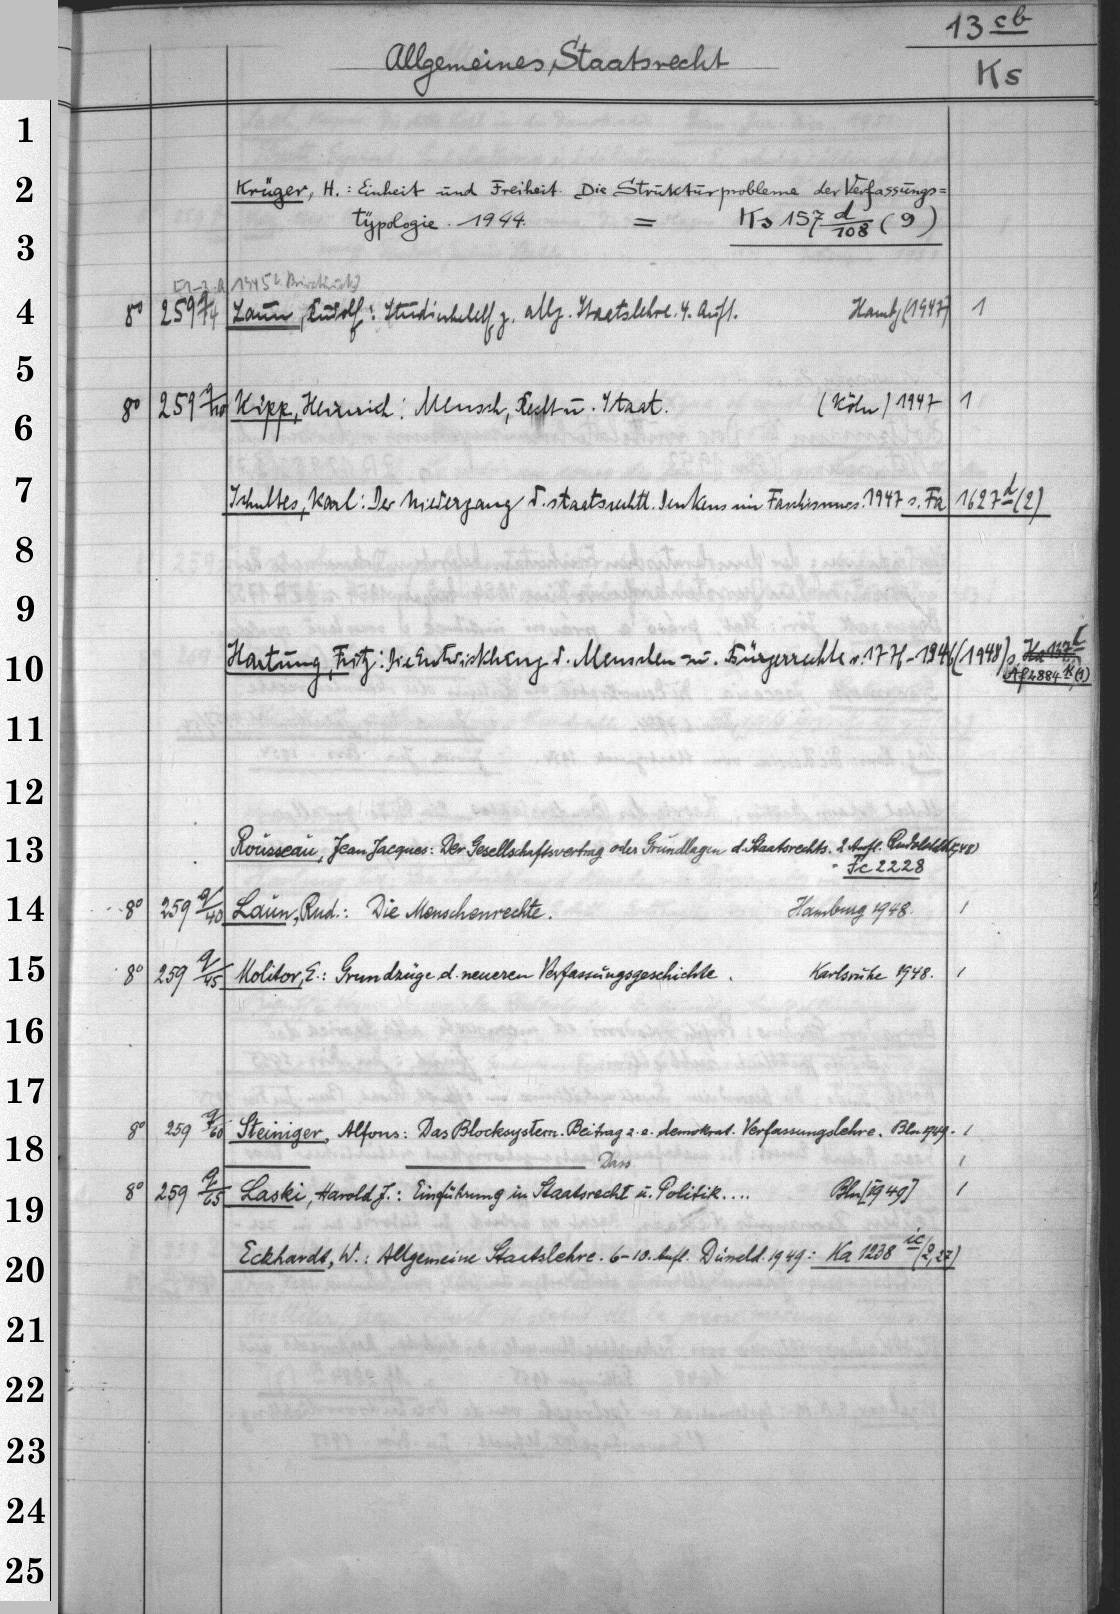 13 cb
Allgemeines Staatsrecht
Ks
1
2 Krüger, H.: Einheit und Freiheit. Die Strukturprobleme der Verfassungs=
typologie. 1944. = Ks 157 d/108 (9)
3
4 8° 259 q/4 Laun, Rudolf: Studienbehelf z. allg. Staatslehre. 4. Aufl. Hambg (1947) 1
5
8° 259 q/10 Kipp, Heinrich: Mensch, Recht u. Staat. (Köln) 1947 1
6
7 Schultes, Karl: Der Niedergang d. staatsrechtl. Denkens im Faschismus. 1947 s. Fa 1627 d (2)
8
9
10 Hartung, Fritz: Die Entwicklung d. Menschen- u. Bürgerrechte v. 1776-1946 (1948) s.
Af 4884 (1)
11
12
13 Rousseau, Jean Jacques: Der Gesellschaftsvertrag oder Grundlagen d. Staatsrechts. 2. Aufl. Rudolstadt (48)
= Fc 2228
14 8° 259 q/40 Laun, Rud.: Die Menschenrechte. Hamburg 1948. 1
15 8° 259 q/45 Molitor, E.: Grundzüge d. neueren Verfassungsgeschichte. Karlsruhe 1948. 1
16
17
8° 259 q/60 Steiniger, Alfons: Das Blocksystem. Beitrag z. e. demokrat. Verfassungslehre. Bln 1949. 1
18 Dass 1
8° 259 q/65 Laski, Harold J.: Einführung in Staatsrecht u. Politik.... Bln [1949] 1
19
20 Eckhardt, W.: Allgemeine Staatslehre. 6-10. Aufl. Düsseld. 1949: Ka 1238 ic (2,27)
21
22
23
24
25